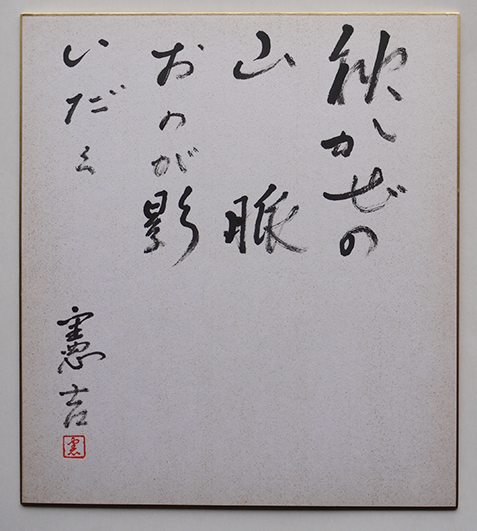 秋かぜの
山脈
おのが影
いだく
憲吉
憲